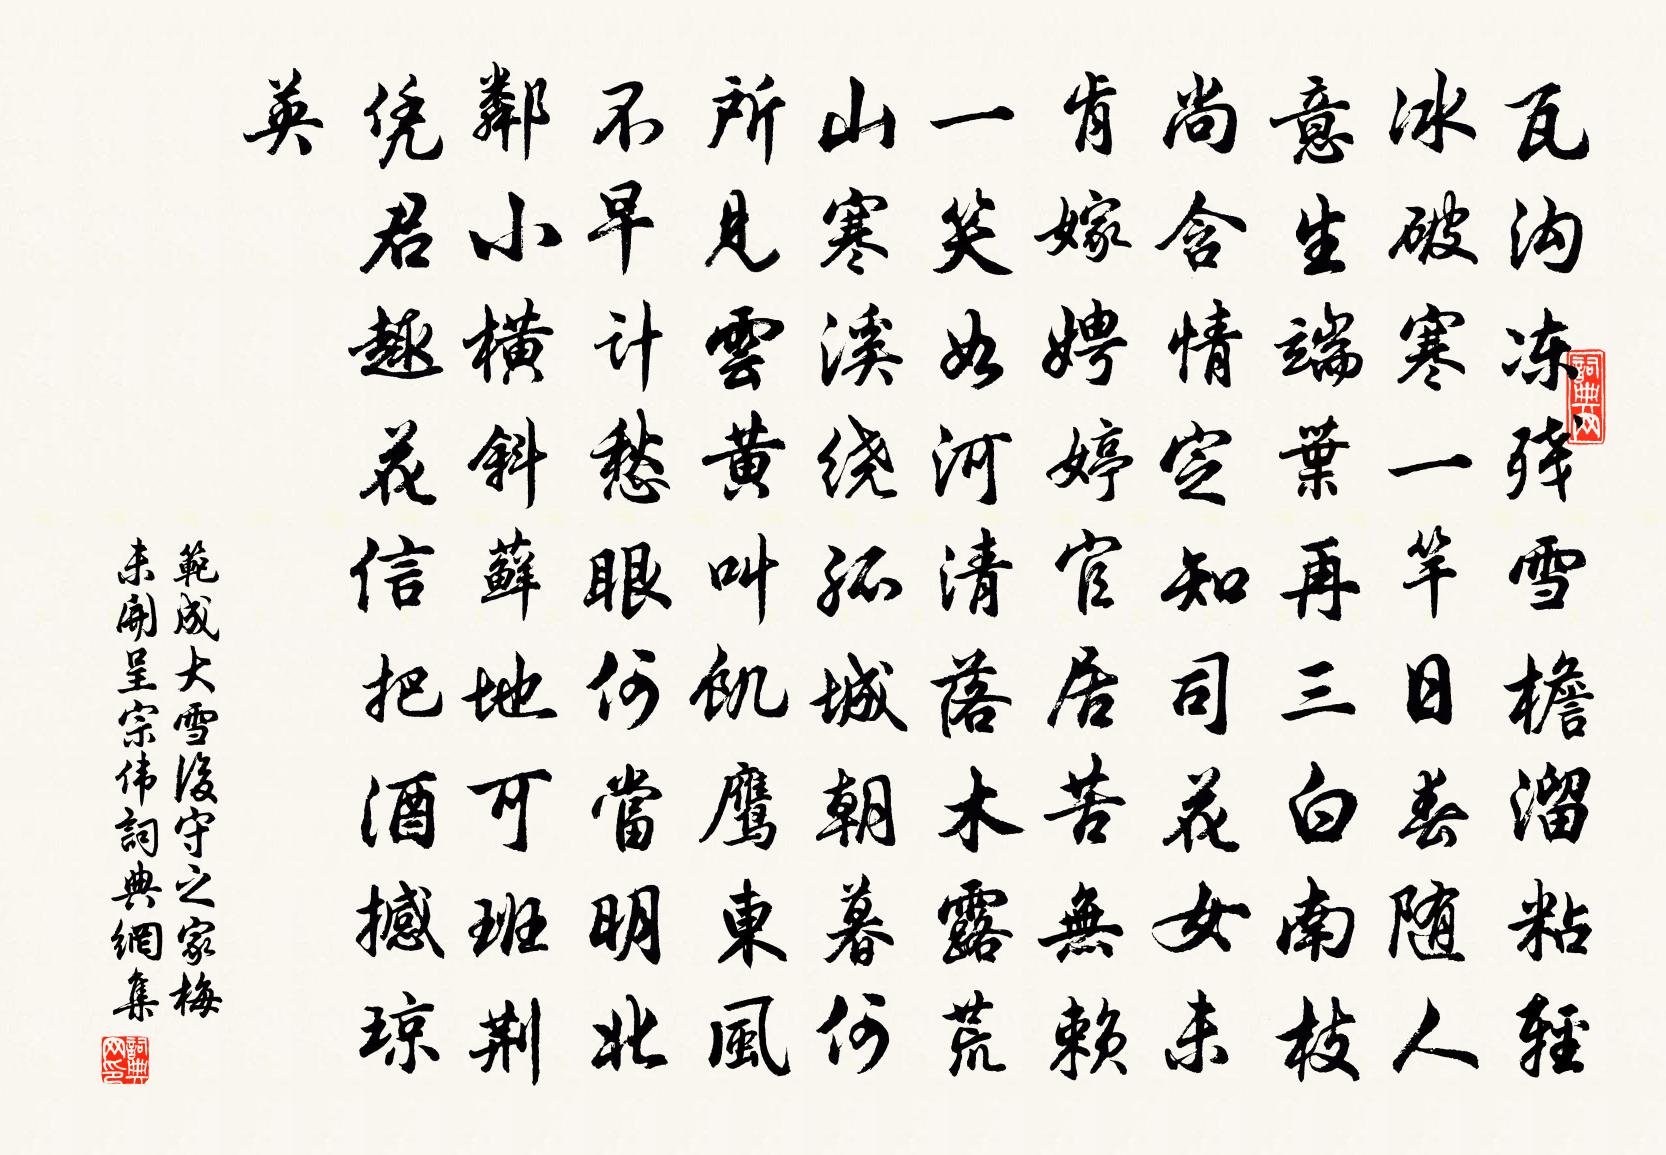 瓦沟冻残雪檐溜粘轻
冰破寒一竿日春随人
意生端葉再三白南枝
尚含情定知司花女未
肯嫁娉婷官居苦無赖
一笑如河清落木露荒
山寒溪绕孤城朝暮何
所見雲黄叫飢鹰東風
不早计愁眼何當明北
鄰小横斜蘚地可班荆
凭君趣花信把酒撼琼
英
範成大雪後守之家梅
未開呈宗伟詞典網集
詞典网
詞典网印